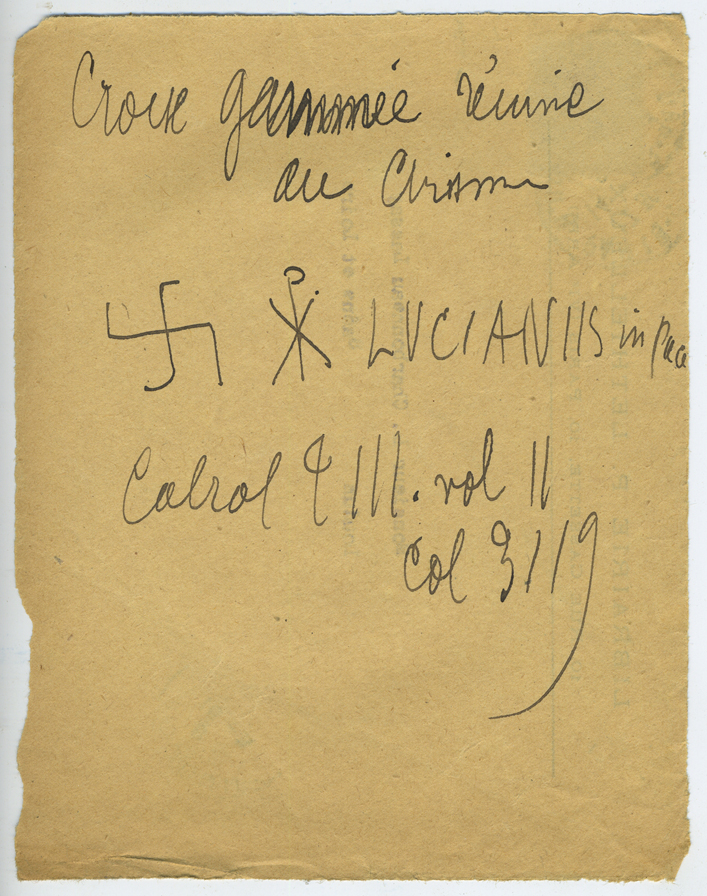 Croix gammée réunie
au Chrisme
卐 ☧ LVCIANUS in Pace
Cabrol T III. vol II
col 3119